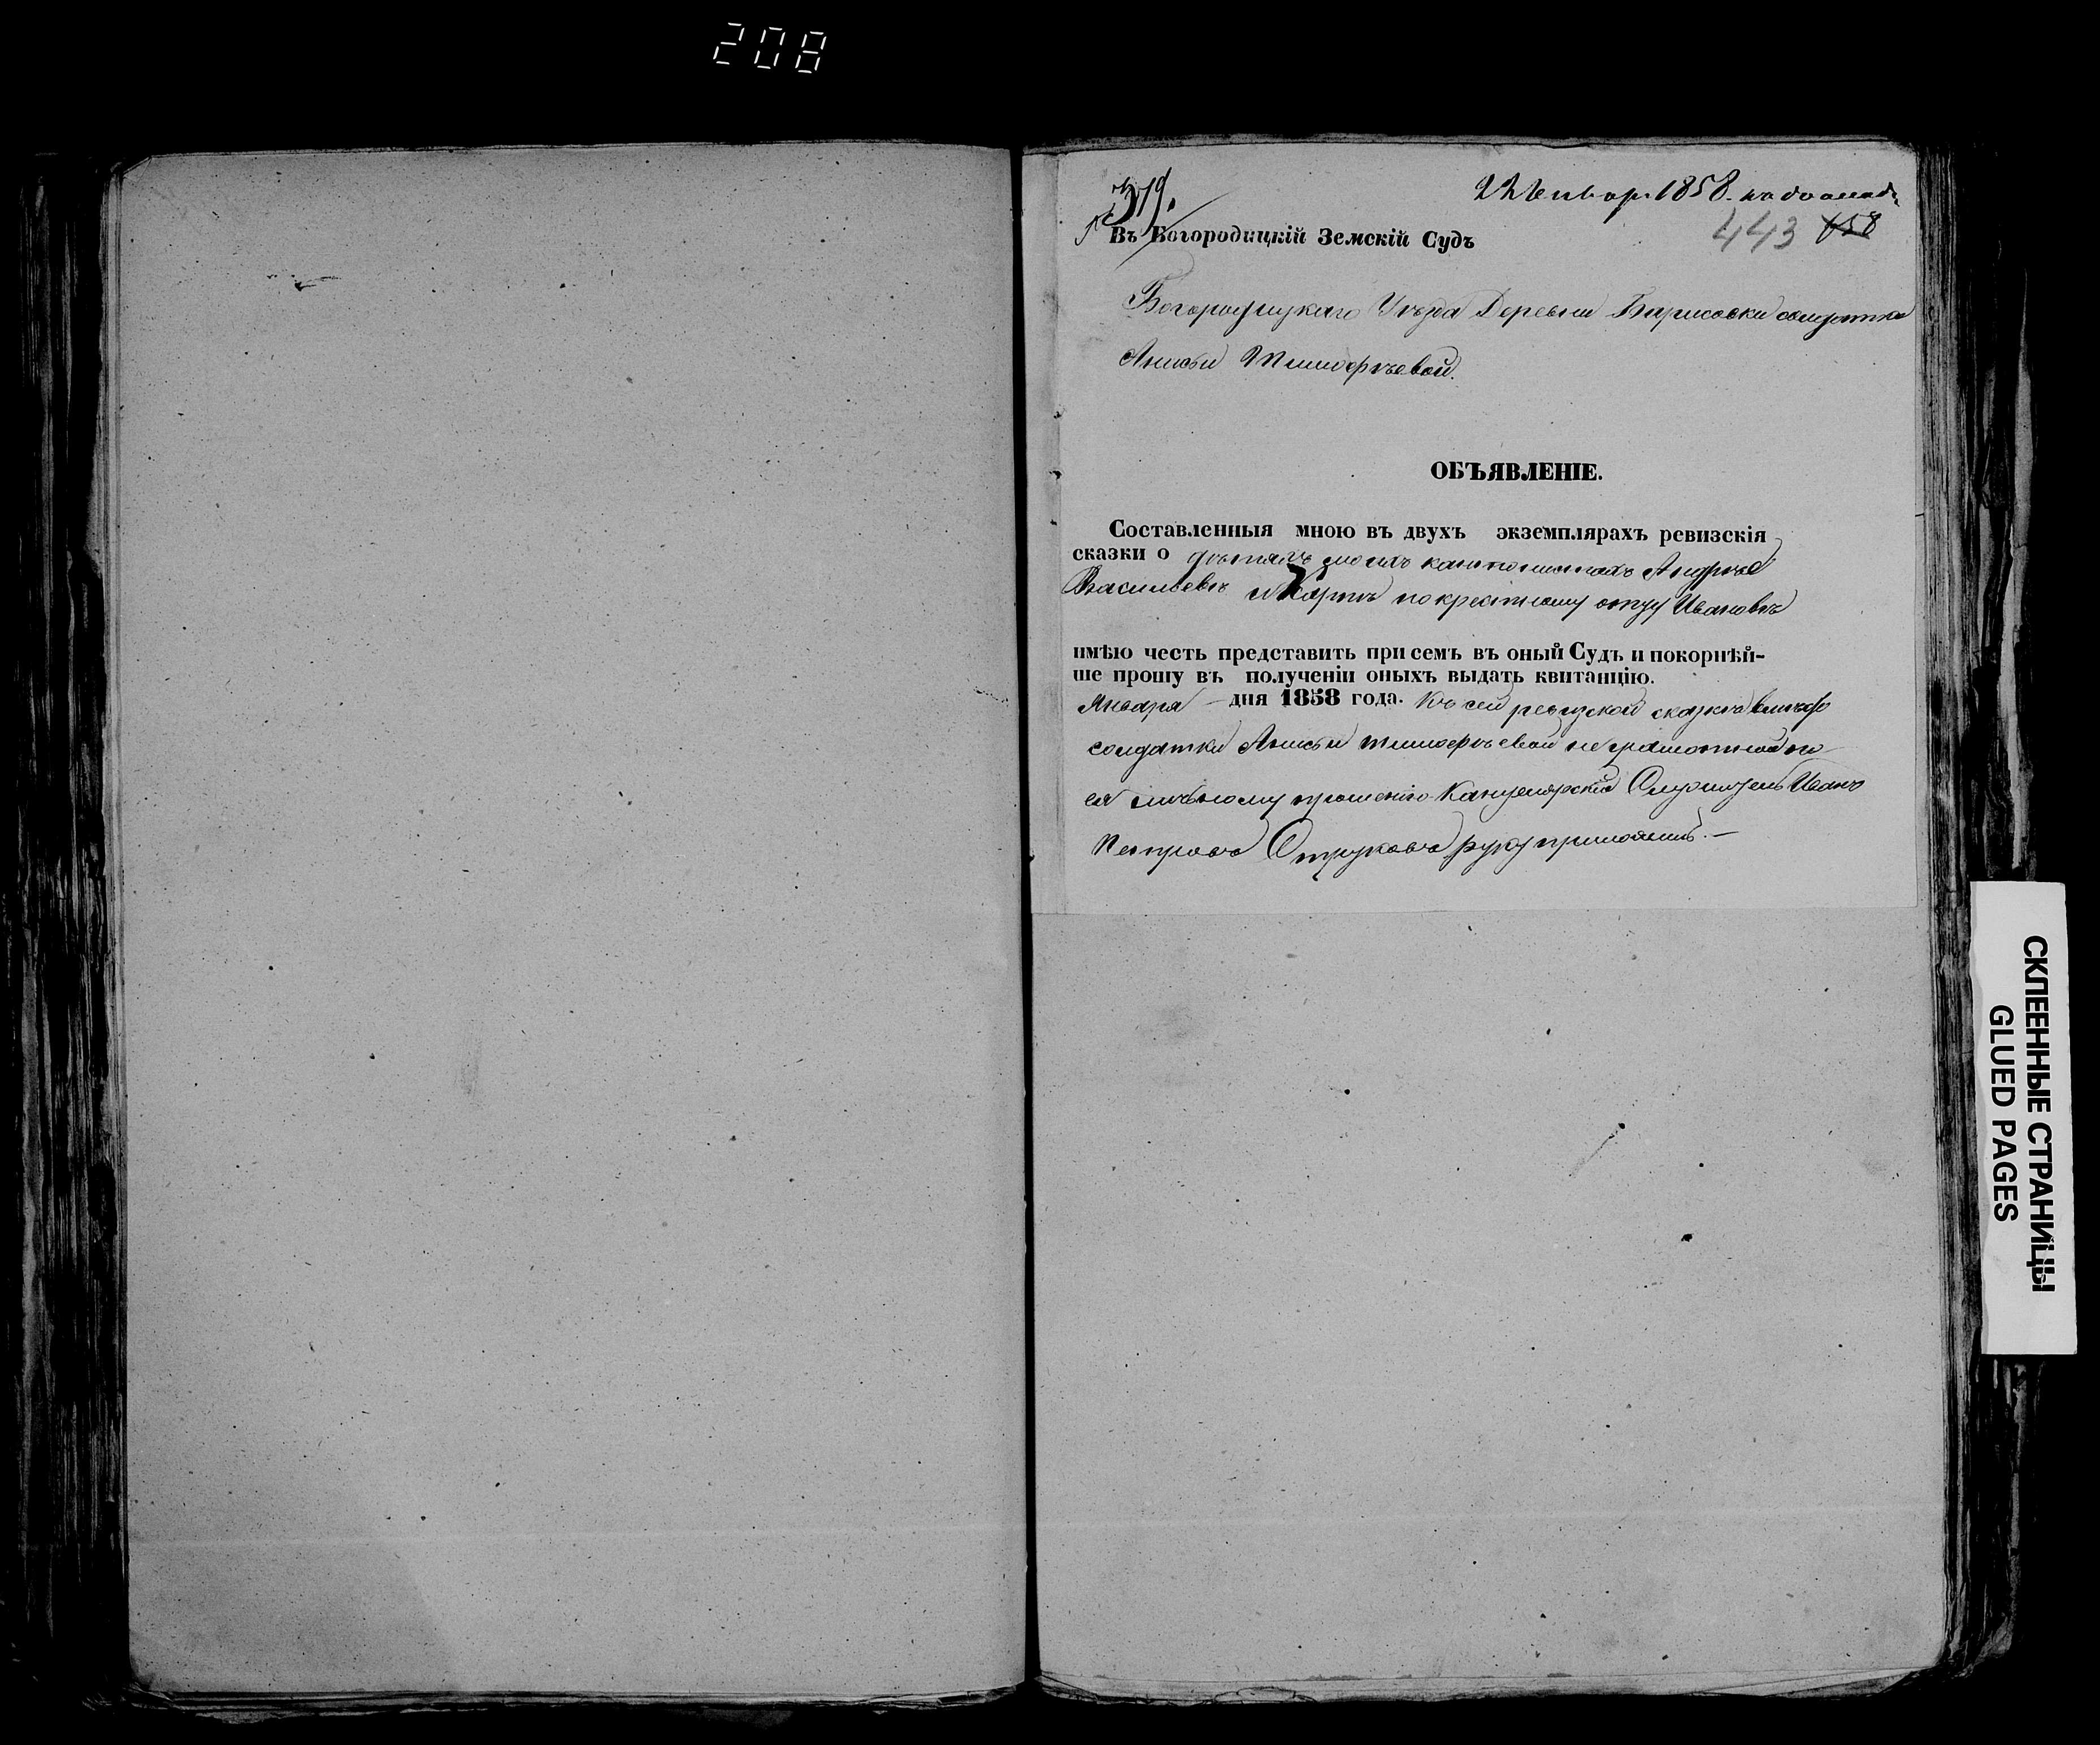 208
379.
22 Январ. 1858.
443 658
Въ Богородицкій Земскій Судъ
Богородицкаго Уѣзда Деревни Барисовки солдатки
Анисьи Тимофѣевой.
ОБЪЯВЛЕНІЕ.
Составленныя мною въ двухъ экземплярахъ ревизскія
сказки о дѣтяхъ моихъ кантонистахъ Андрѣе
Васильевѣ и Карпѣ по крестному отцу Ивановѣ
имѣю честь представить при семъ въ оный Судъ и покорнѣй-
ше прошу въ полученіи оныхъ выдать квитанцію.
Января - дня 1858 года. Къ сей ревизской сказкѣ вместо
солдатки Анисьи тимофѣевой неграмотной по
ея личьному прошенію Канцелярской Служитель Иванъ
Петровъ Струковъ руку приложилъ. —
СКЛЕЕННЫЕ СТРАНИЦЫ
GLUED PAGES